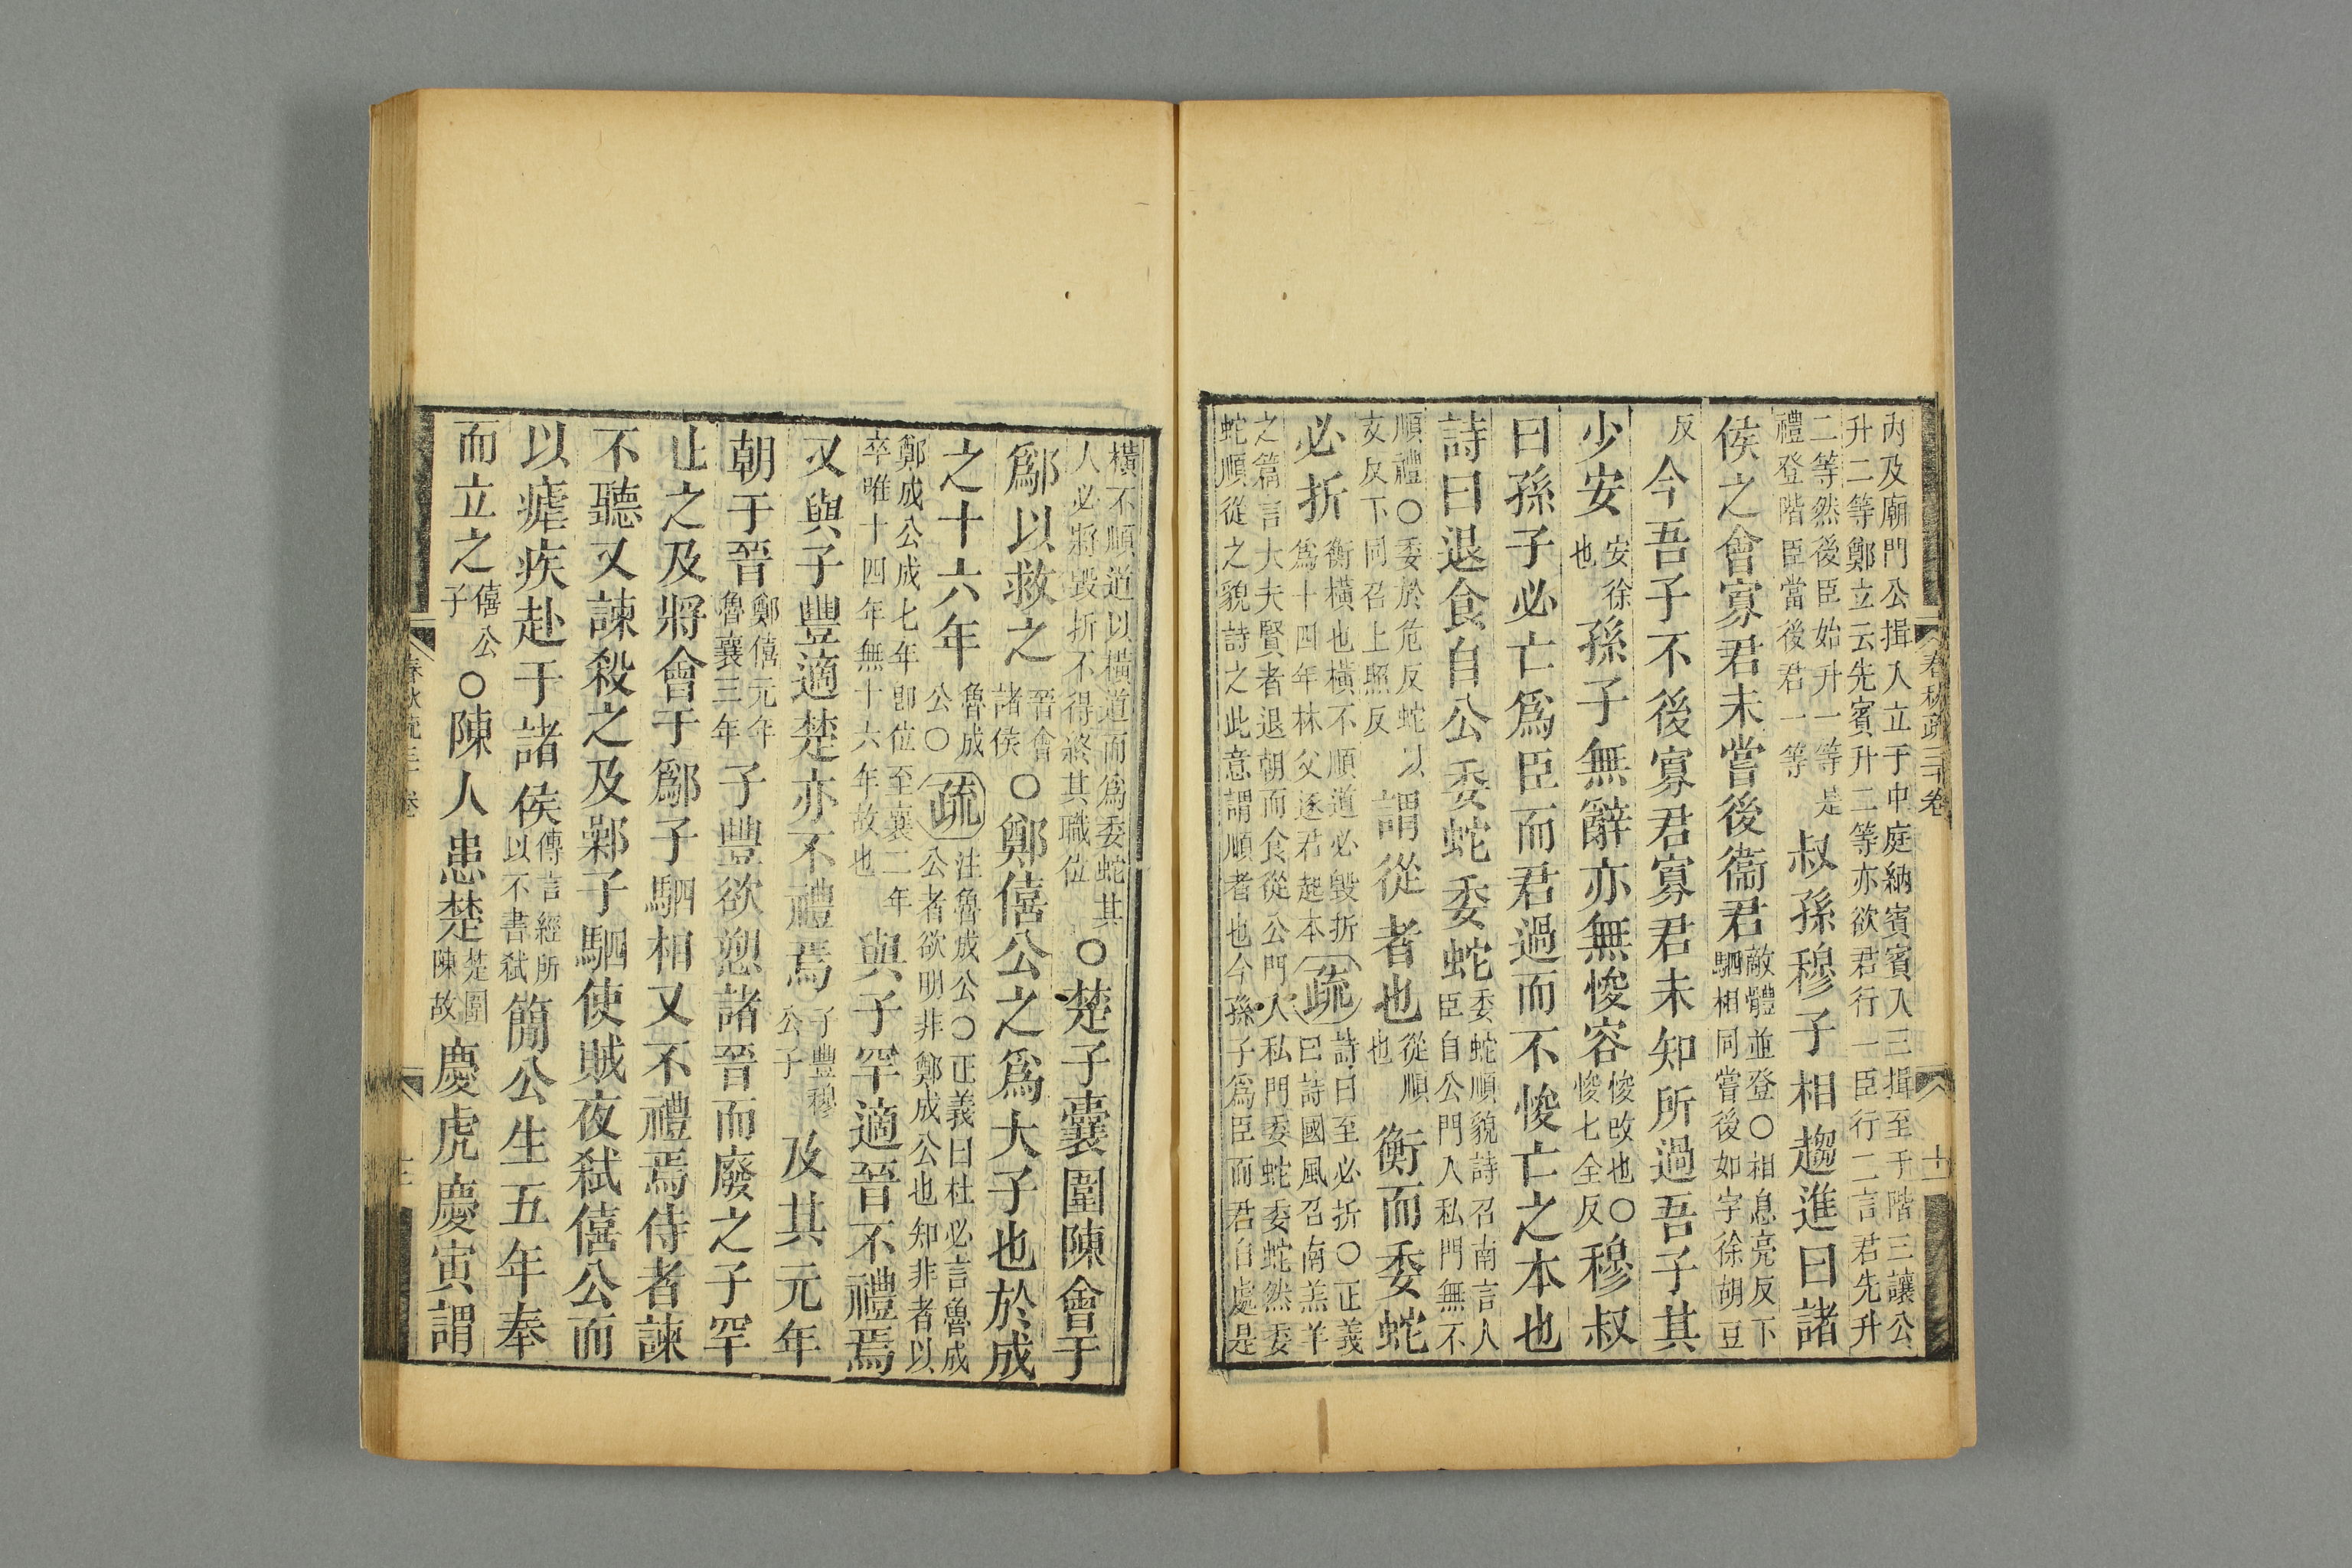 內及廟門公揖入立于中庭納賓賓入三揖至于階三讓公
升二等鄭立云先賓升二等亦欲君行一臣行二言君先升
二等然後臣始升一等是
禮登階臣當後君一等
叔孫穆子相趨進曰諸
侯之會寡君未嘗後衞君
敵體並登○相息亮反下
駟相同嘗後如字徐胡豆
反
今吾子不後寡君寡君未知所過吾子其
少安
安徐
也
孫子無辭亦無悛容
悛改也○
悛七全反
穆叔
曰孫子必亡爲臣而君過而不悛亡之本也
詩曰退食自公委蛇委蛇
委蛇順貌詩召南言人
臣自公門入私門無不
順禮○委於危反蛇以
支反下同召上照反
謂從者也
從順
也
衡而委蛇
必折
衡橫也橫不順道必毀折
爲十四年林父逐君起本
疏
詩曰至必折○正義
曰詩國風召南羔羊
之篇言大夫賢者退朝而食從公門入私門委蛇委蛇然委
蛇順從之貌詩之此意謂順者也今孫子爲臣而君自處是
春秋疏三十卷
十一
橫不順道以橫道而爲委蛇其
人必將毀折不得終其職位
○楚子囊圍陳會于
鄬以救之
晉會
諸侯
○鄭僖公之爲大子也於成
之十六年
魯成
公○
疏
注魯成公○正義曰杜必言魯成
公者欲明非鄭成公也知非者以
鄭成公成七年卽位至襄二年
卒唯十四年無十六年故也
與子罕適晉不禮焉
又與子豐適楚亦不禮焉
子豐穆
公子
及其元年
朝于晉
鄭僖元年
魯襄三年
子豐欲愬諸晉而廢之子罕
止之及將會于鄬子駟相又不禮焉侍者諫
不聽又諫殺之及鄵子駟使賊夜弒僖公而
以瘧疾赴于諸侯
傳言經所
以不書弒
簡公生五年奉
而立之
僖公
子
○陳人患楚
楚圍
陳故
慶虎慶寅謂